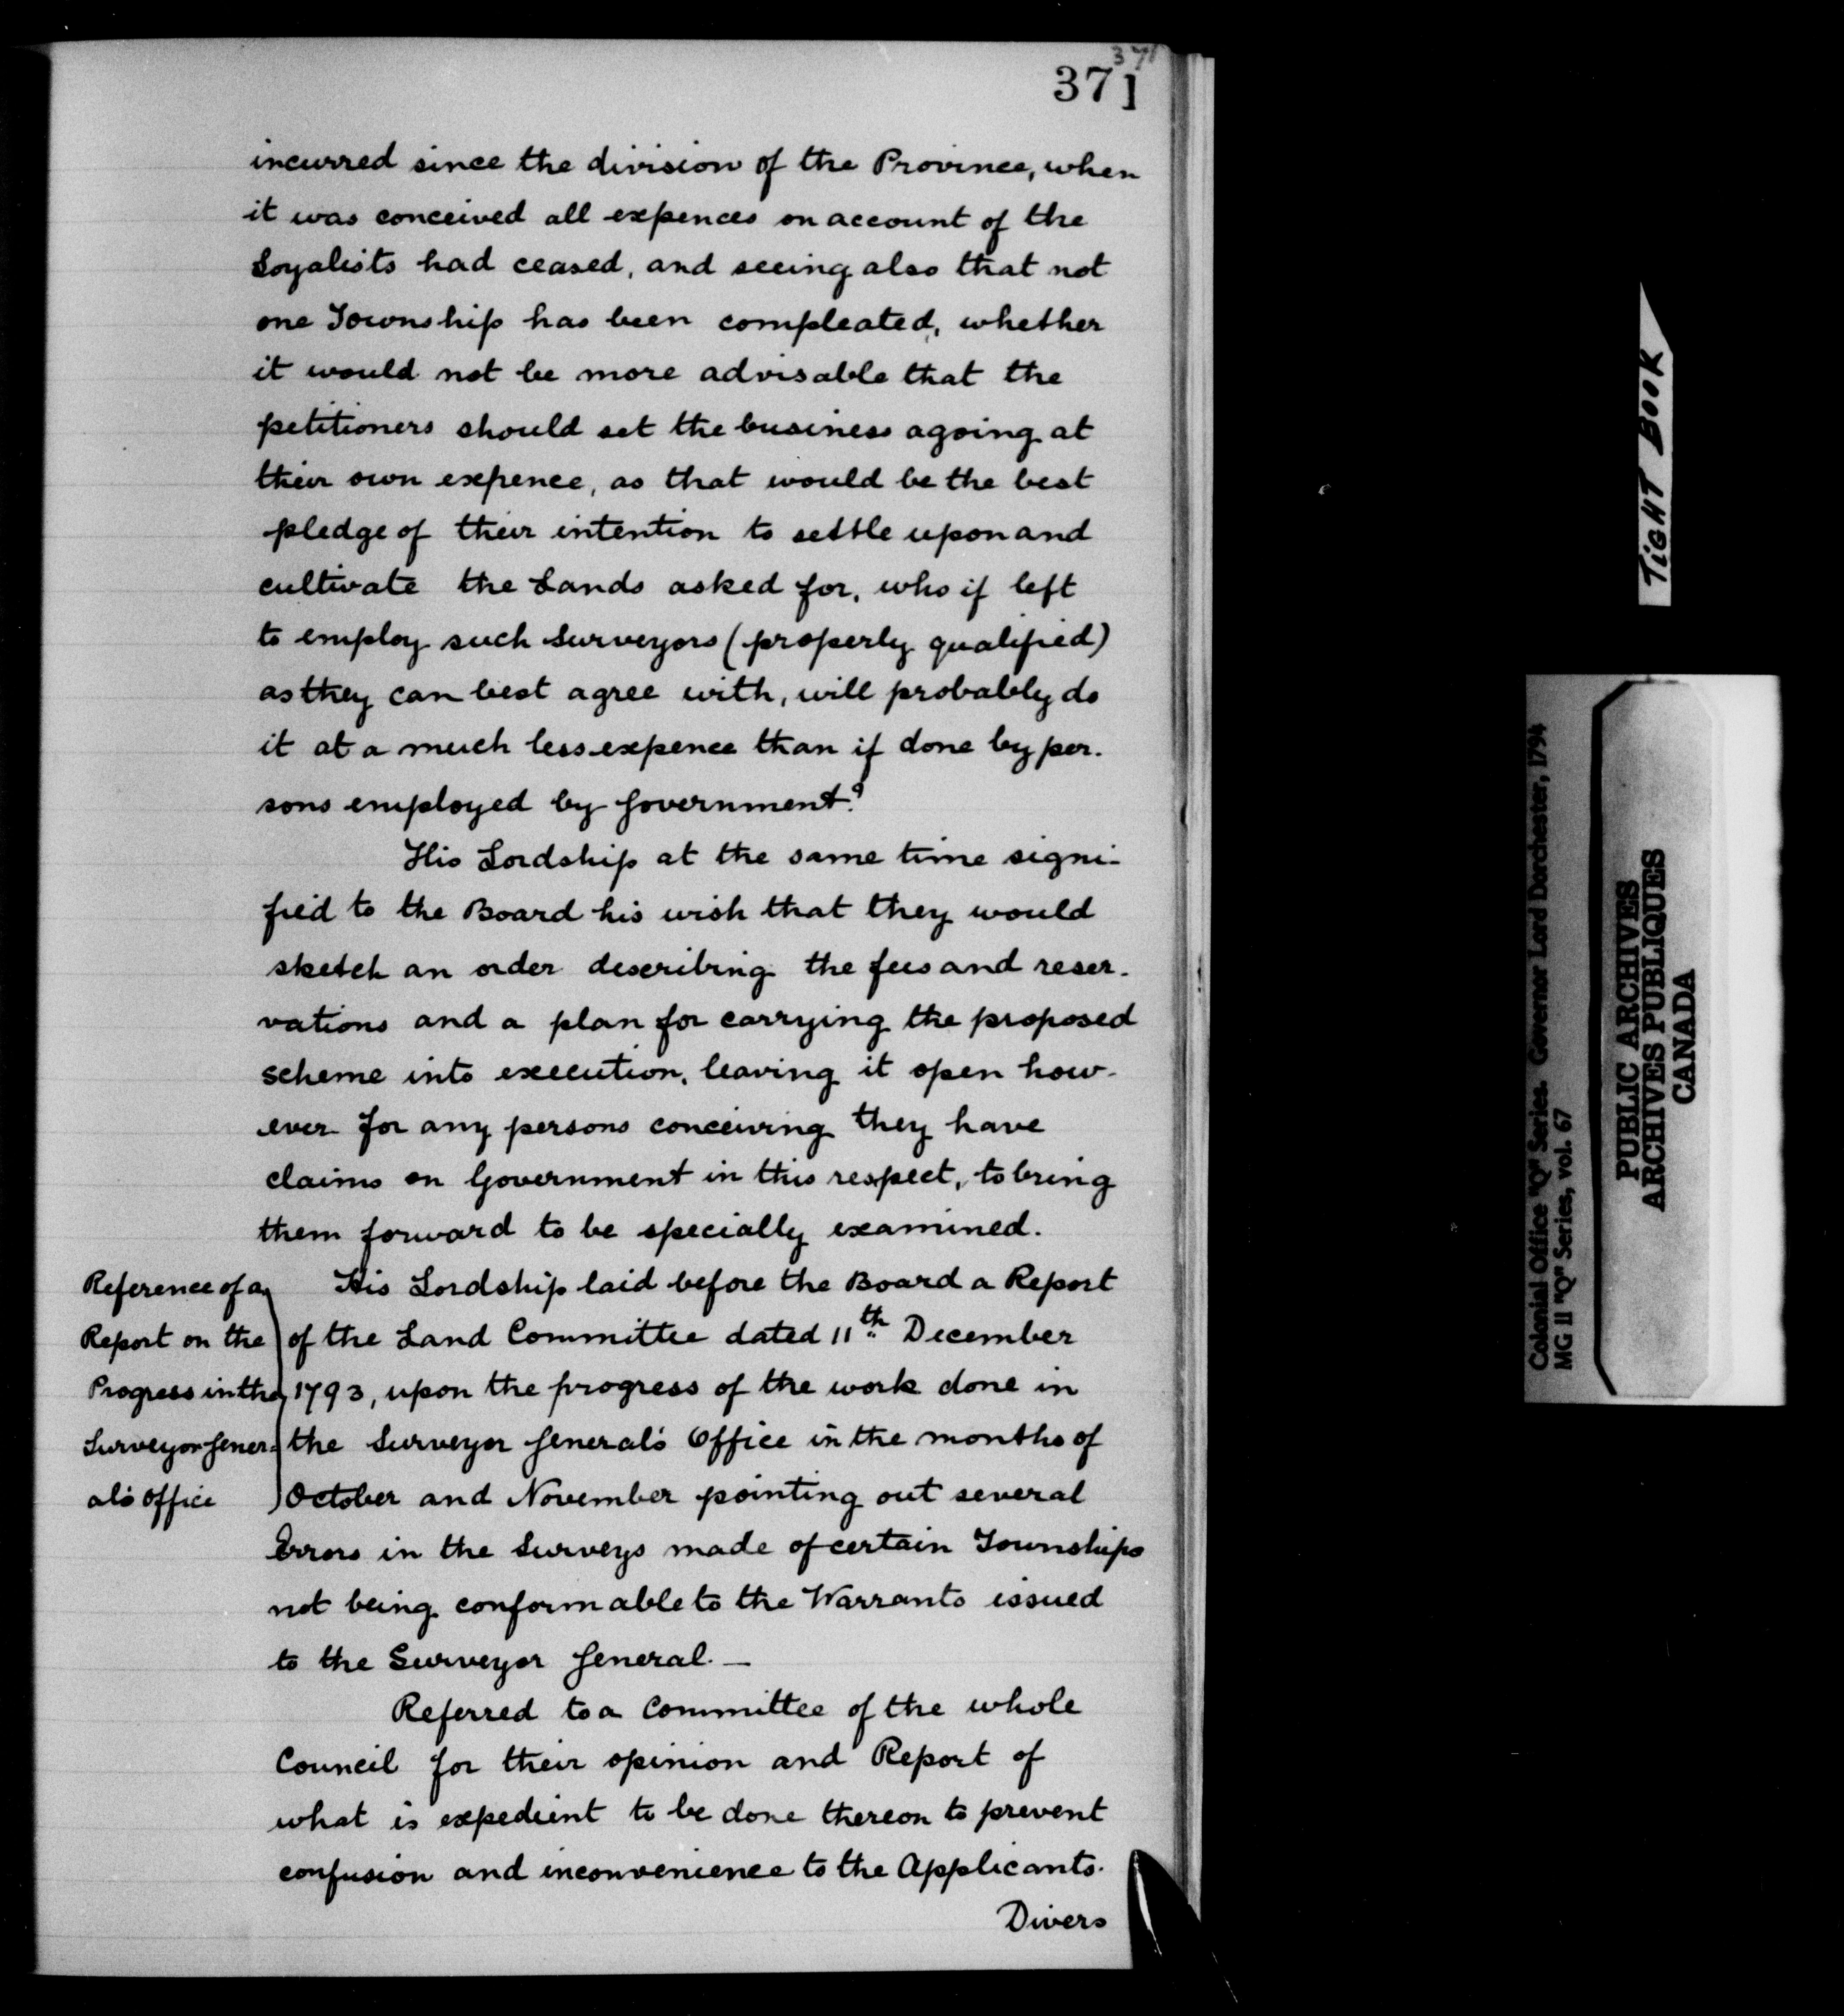 371
371
incurred since the division of the Province, when
it was conceived all expences on account of the
Loyalists had ceased, and seeing also that not
one Township has been compleated, whether
it would not be more advisable that the
petitioners should set the business agoing at
their own expence, as that would be the best
pledge of their intention to settle upon and
cultivate the Lands asked for, who if left
to employ such Surveyors (properly qualified)
as they can best agree with, will probably do
it at a much less expence than if done by per-
sons employed by Government?
His Lordship at the same time signi-
fied to the Board his wish that they would
sketch an order describing the fees and reser-
vations and a plan for carrying the proposed
scheme into execution, leaving it open how-
ever for any persons conceiving they have
claims on Government in this respect, to bring
them forward to be specially examined.
Reference of a
Report on the
Progress in the
Surveyor Gener-
al's Office
His Lordship laid before the Board a Report
of the Land Committee dated 11th December
1793, upon the progress of the work done in
the Surveyor General's Office in the months of
October and November pointing out several
Errors in the Surveys made of certain Townships
not being conformable to the Warrants issued
to the Surveyor General. —
Referred to a Committee of the whole
Council for their opinion and Report of
what is expedient to be done thereon to prevent
confusion and inconvenience to the Applicants.
Divers
TIGHT BOOK
Colonial Office "Q" Series. Governor Lord Dorchester, 1794
MG 11 "Q" Series, vol. 67
PUBLIC ARCHIVES
ARCHIVES PUBLIQUES
CANADA